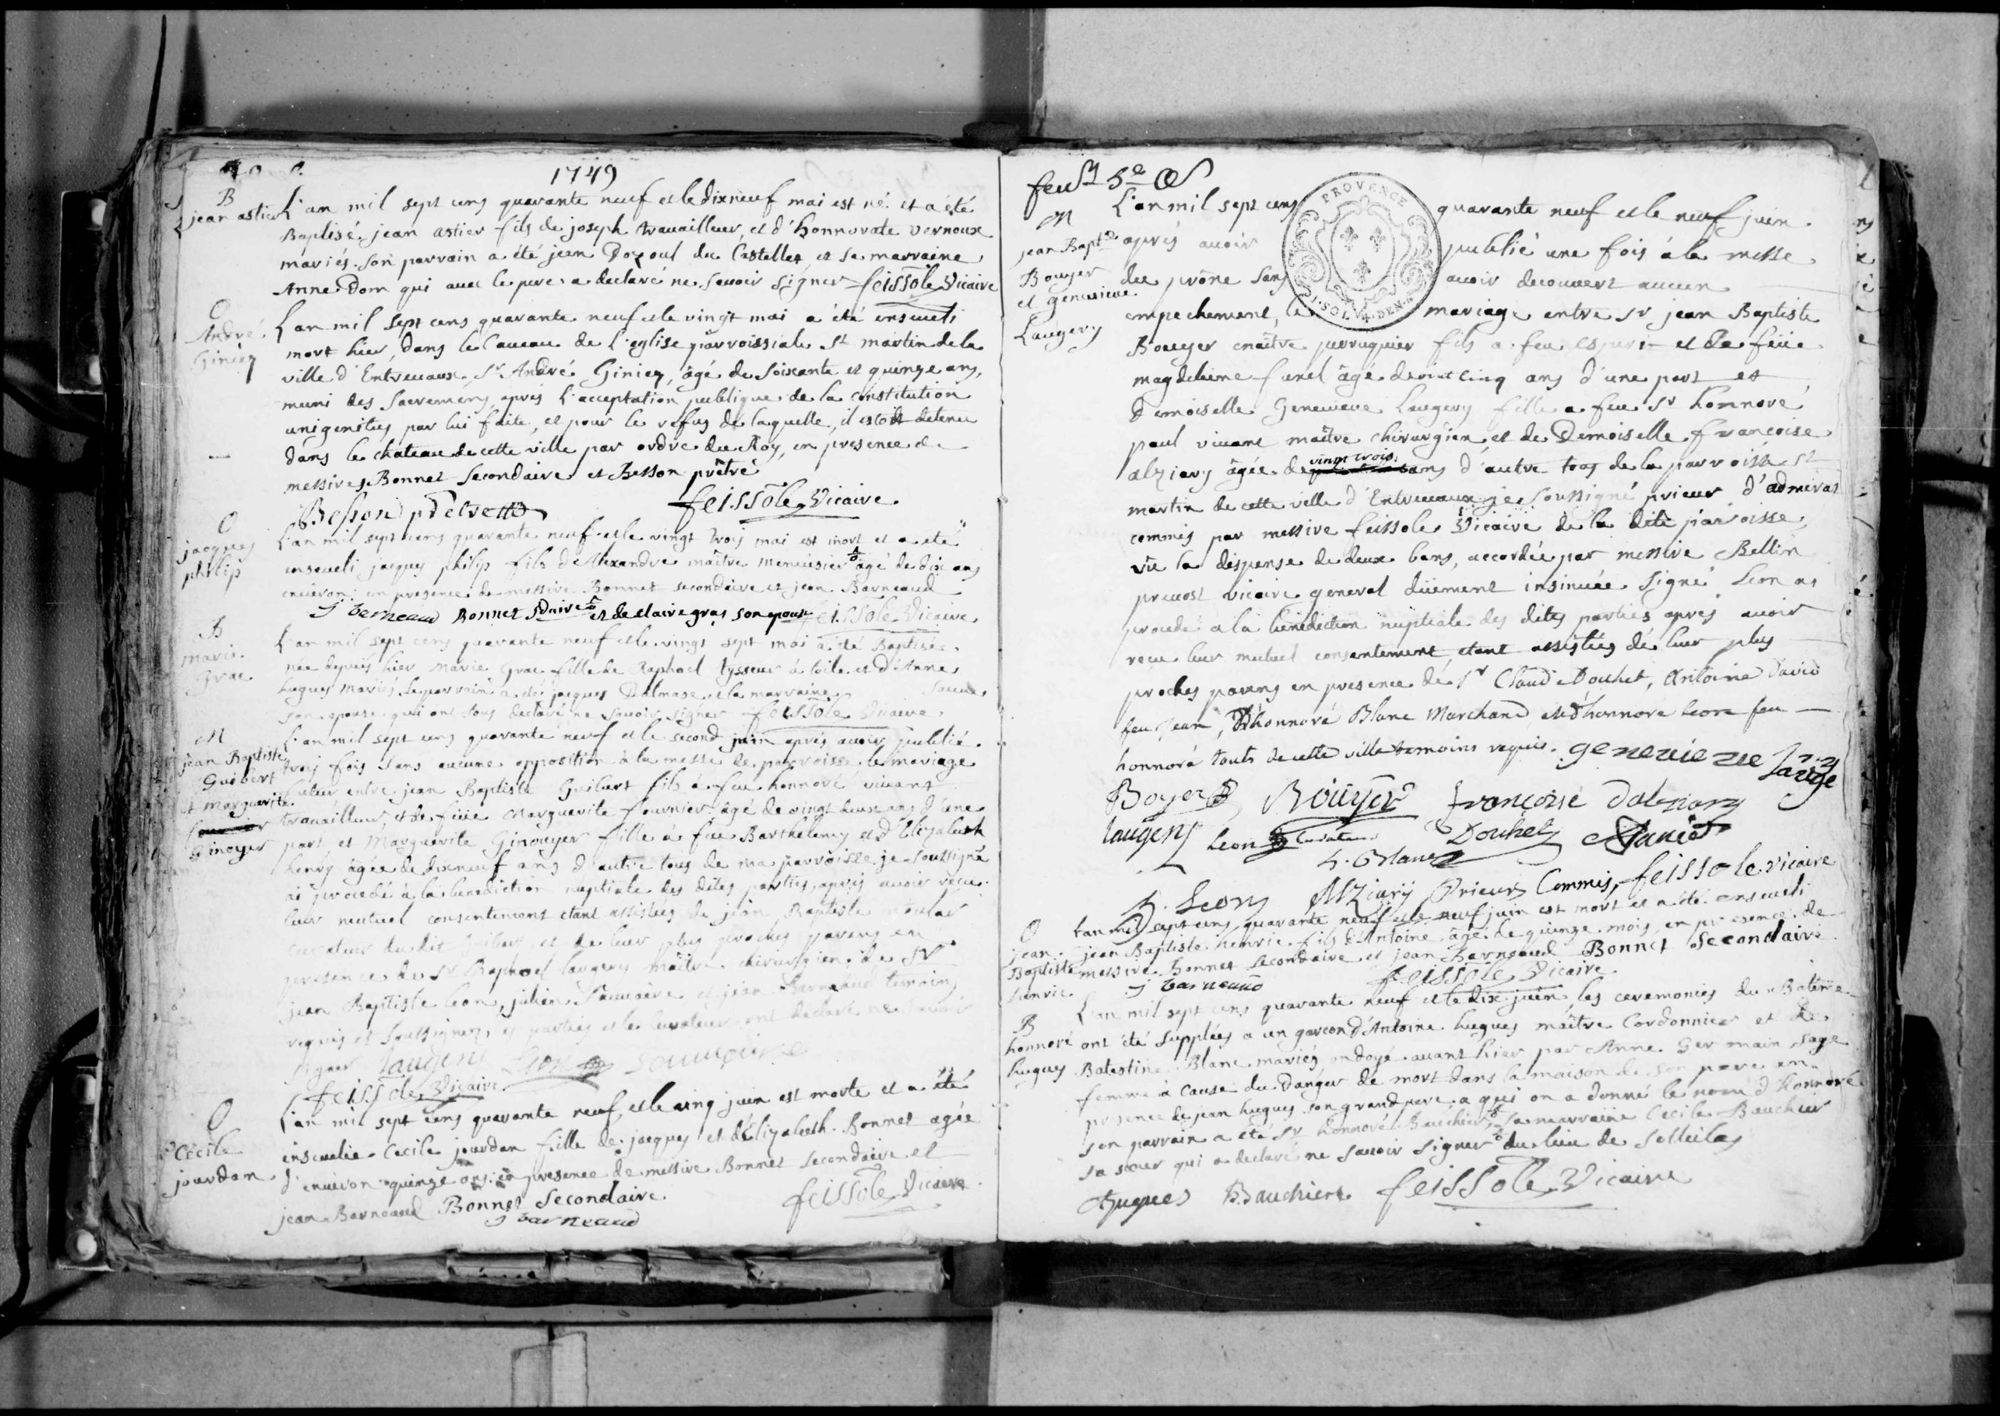 1749
B
jean astier
L'an mil sept cens quarante neuf et le dixneuf mai est né et a été
Baptisé jean astier fils de joseph travailleur, et d'honnorate vernoux
mariés. son parrain a été jean du Castellet, et sa marraine
Anne Dom qui avec le pere a declaré ne savoir signer feissole Vicaire
O
André
Giniez
L'an mil sept cens quarante neuf et le vingt mai a été enseveli
mort hier, dans le Caveau de l'eglise parroissiale St martin de la
ville d'Entrevaux Sr André Giniez, âgé de soixante et quinze ans,
muni des sacremens après l'acceptation publique de la constitution
unigenitus par lui faite, et pour le refus de laquelle, il estoit detenu
dans le chateau de cette ville par ordre du Roy, en presence de
messires Bonnet Secondaire et Besson prêtre
Besson prêtre feissole Vicaire
O
jacques
philip
L'an mil sept cens quarante neuf et le vingt trois mai est mort et a été
enseveli jacques philip fils de Alexandre maître menuisier âgé de dix ans
environ en presence de messire Bonnet secondaire et jean Barneaud
J barneaud Bonnet Sdaire et de claire gras son epouse feissole Vicaire
B
marie
Grac
L'an mil sept cens quarante neuf et le vingt sept mai a été Baptisée
née depuis hier marie Grac fille de Raphael tysseur à toile et d'Anne
hugues mariés. le parrain a été jacques Dalmase et la marraine
son epouse qui ont tous declaré ne savoir signer feissole Vicaire
M
jean Baptiste
Guibert
et marguerite
Ginoyer
L'an mil sept cens quarante neuf et le second juin après avoir publié
trois fois sans aucune opposition à la messe de parroisse le mariage
futur entre jean Baptiste Guibert fils à feu honnoré vivant
travailleur et de feüe marguerite fournier âgé de vingt deux ans d'une
part, et Marguerite Ginoeyer fille a feu Barthelemy et d'Elizabeth
henry âgée de dixneuf ans d'autre tous de ma parroisse je soussigné
ai procedé à la benediction nuptiale des dites parties, après avoir reçu
leur mutuel consentement etant assistées de jean Baptiste
Curateur du dit Guibert et de leur plus proches parens en
presence de Sr Raphael laugery maître chirurgien de Sr
jean Baptiste leon, julien Sauvaire et jean Barneaud temoins
requis et soussignez, les parties et le Curateur ont declaré ne savoir
signer laugery Leon Sauvaire
feissole Vicaire
O
Cécile
jourdan
L'an mil sept cens quarante neuf, et le cinq juin est morte et a été
ensevelie Cecile jourdan fille de jacques et d'Elizabeth Bonnet agée
d'environ quinze ans en presence de messire Bonnet secondaire et
jean Barneaud Bonnet Secondaire. feissole Vicaire
J barneaud
feuillet 5e
M
jean Baptte
Bouyer
et genevieve
Laugery
PROVENCE
L'an mil sept cens quarante neuf et le neuf juin
après avoir publié une fois à la messe
du prône sans avoir decouvert aucun
empechement, le mariage entre Sr jean Baptiste
Bouyer maître perruquier fils a feu et de feüe
magdeleine âgé de vint cinq ans d'une part et
Demoiselle Genevieve Laugery fille a feu Sr honnoré
paul vivant maître chirurgien et de Demoiselle françoise
alziary âgée de vingt trois ans d'autre tous de la parroisse St
martin de cette ville d'Entrevaux je soussigné prieur d'admirat
commis par messire feissole Vicaire de la dite parroisse,
vû la dispense de deux bans, accordée par messire Bellin
prevost vicaire general düement insinuée signé Leon ai
procedé a la benediction nuptiale des dites parties après avoir
reçu leur mutuel consentement etant assistées de leur plus
proches parens en presence de Sr Claude Douhet, Antoine David
feu jean, d'honnoré Blanc Marchand et d'honnoré leon feu
honnoré touts de cette ville temoins requis. genevieve Laugery
Boyer Boüyer françoise dalziary
laugery Leon Douhet David
h. Blanc
h. Leon Alziary Prieur Commis, feissole vicaire
O
jean
Baptiste
henric
L'an mil sept cens quarante neuf et le neuf juin est mort et a été enseveli
jean Baptiste henric fils d'Antoine âgé de quinze mois, en presence de
messire Bonnet secondaire et jean Barneaud Bonnet Secondaire
J barneaud feissole Vicaire
B
honnoré
hugues
L'an mil sept cens quarante neuf et le dix juin les ceremonies du Batême
ont été supplées a un garcon d'Antoine hugues maître Cordonnier et de
Balestine Blanc mariés ondoyé avant hier par Anne Germain sage
femme à cause du danger de mort dans la maison de son pere en
presence de jean hugues son grand pere a qui on a donné le nom d'honnoré
son parrain a été Sr honnoré Bauchier, sa marraine Cecile Bauchier
sa sœur qui a declaré ne savoir signer du lieu de
hugues Bauchier feissole Vicaire